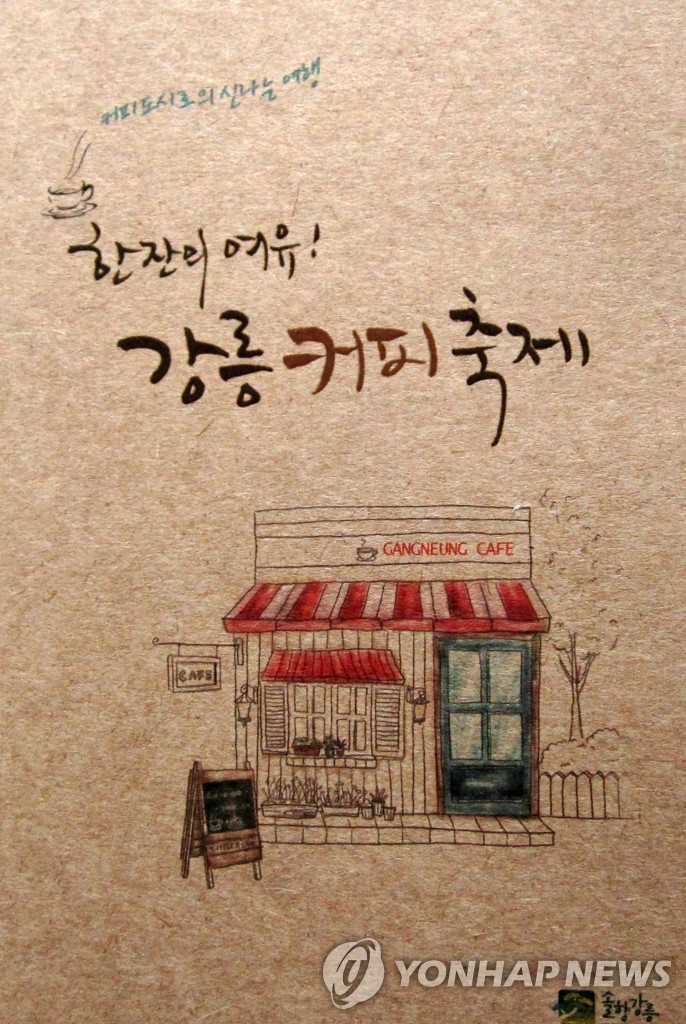 커피도시로의 신나는 여행
한잔의 여유!
강릉커피축제
GANGNEUNG CAFE
CAFE
YONHAP NEWS
솔향강릉